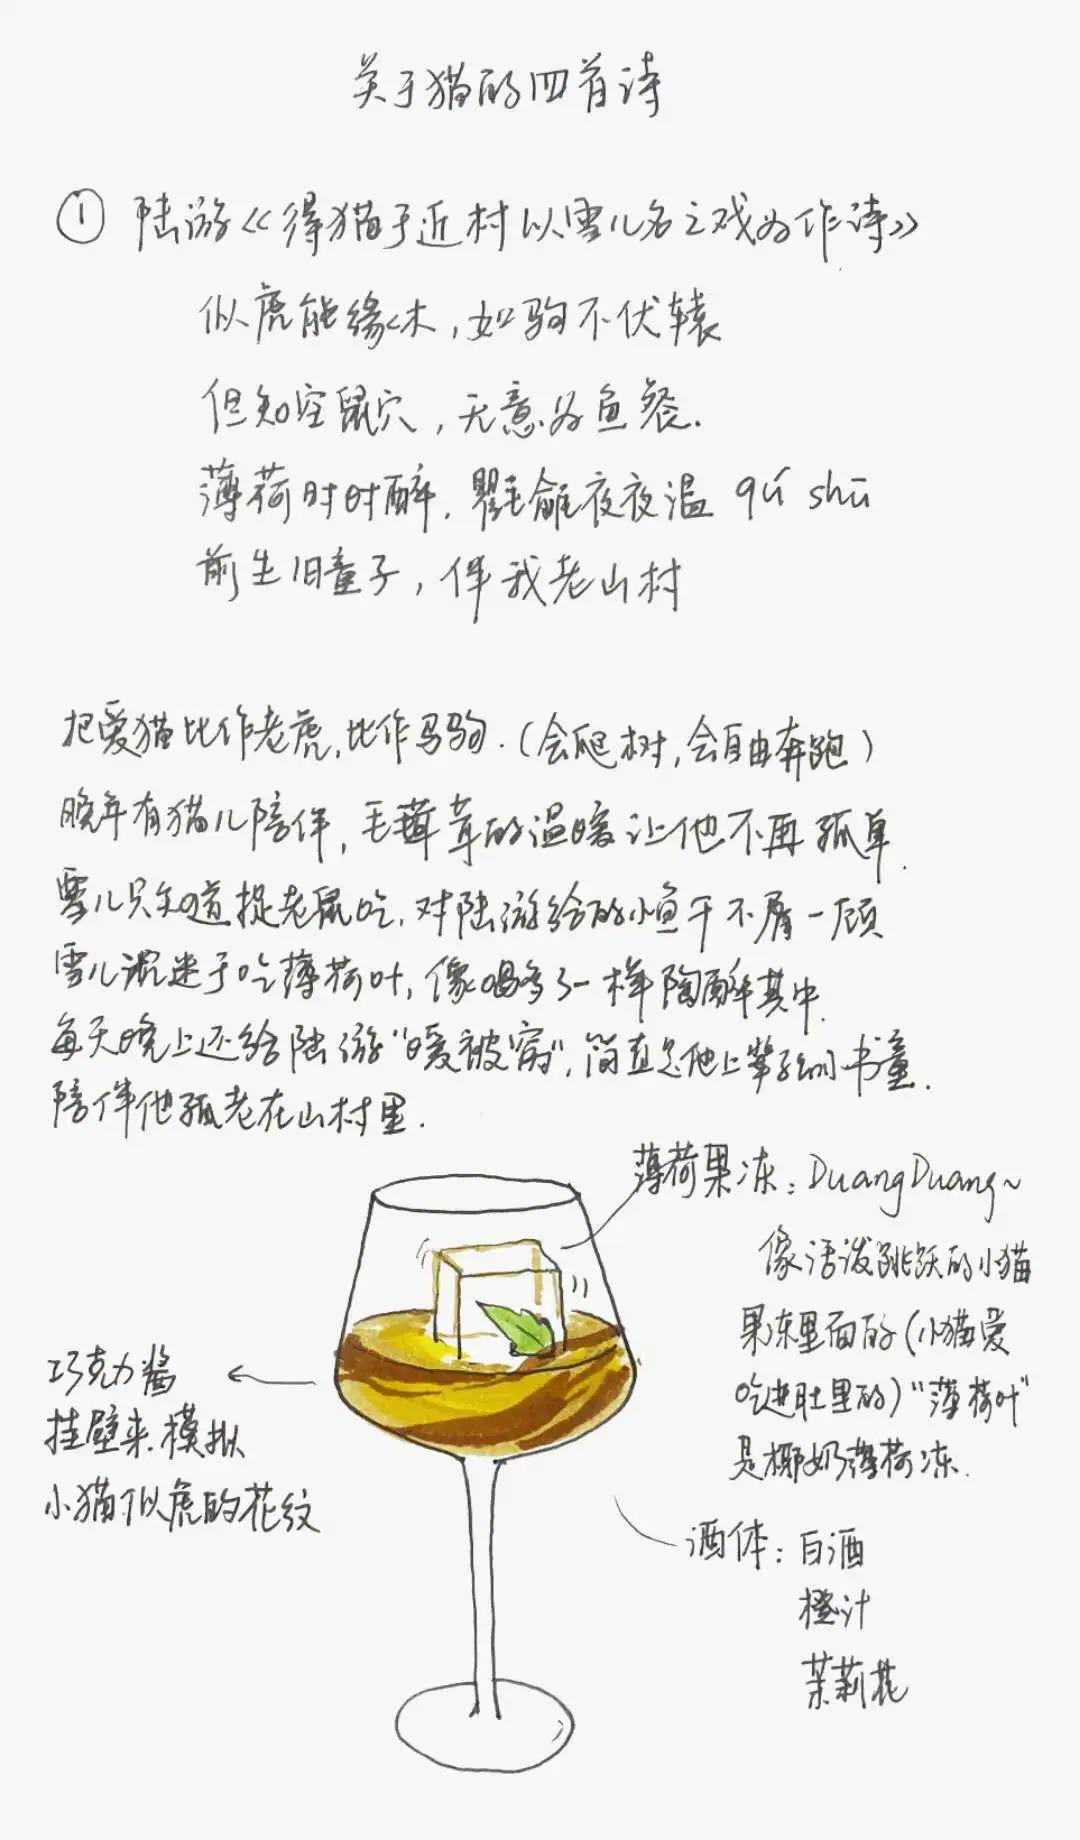 关于猫的四首诗
① 陆游《得猫于近村以雪儿名之戏为作诗》
似虎能缘木，如驹不伏辕
但知空鼠穴，无意为鱼餐.
薄荷时时醉，氍毹夜夜温 qú shū
前生旧童子，伴我老山村
把爱猫比作老虎,比作马驹.(会爬树,会自由奔跑)
晚年有猫儿陪伴,毛茸茸的温暖让他不再孤单.
雪儿只知道捉老鼠吃,对陆游给的小鱼干不屑一顾
雪儿沉迷于吃薄荷叶,像喝多了一样陶醉其中.
每天晚上还给陆游"暖被窝",简直是他上辈子的书童.
陪伴他孤老在山村里.
薄荷果冻: DuangDuang~
像活泼跳跃的小猫
果冻里面的(小猫爱
吃进肚里的)"薄荷叶"
是椰奶薄荷冻.
巧克力酱
挂壁来模拟
小猫似虎的花纹
酒体: 白酒
橙汁
茉莉花